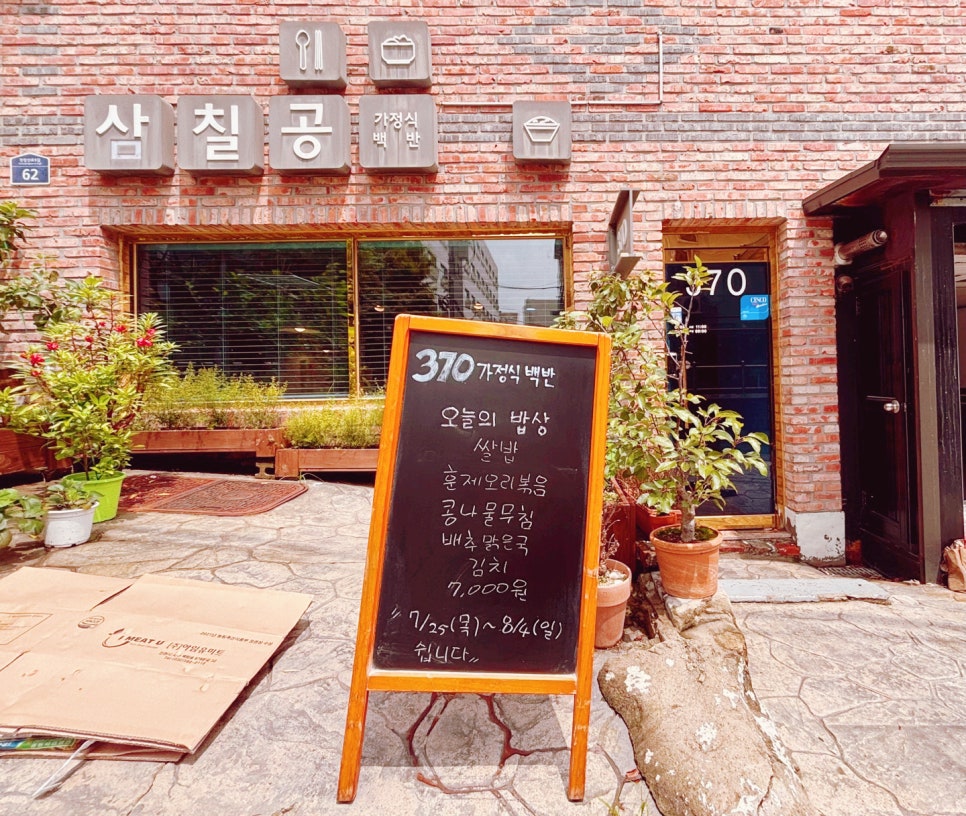 삼칠공
가정식
백반
62
370
CESCO
370 가정식 백반
오늘의 밥상
쌀밥
훈제오리볶음
콩나물무침
배추맑은국
김치
7,000원
" 7/25(목)~8/4(일)
쉽니다 "
MEAT U